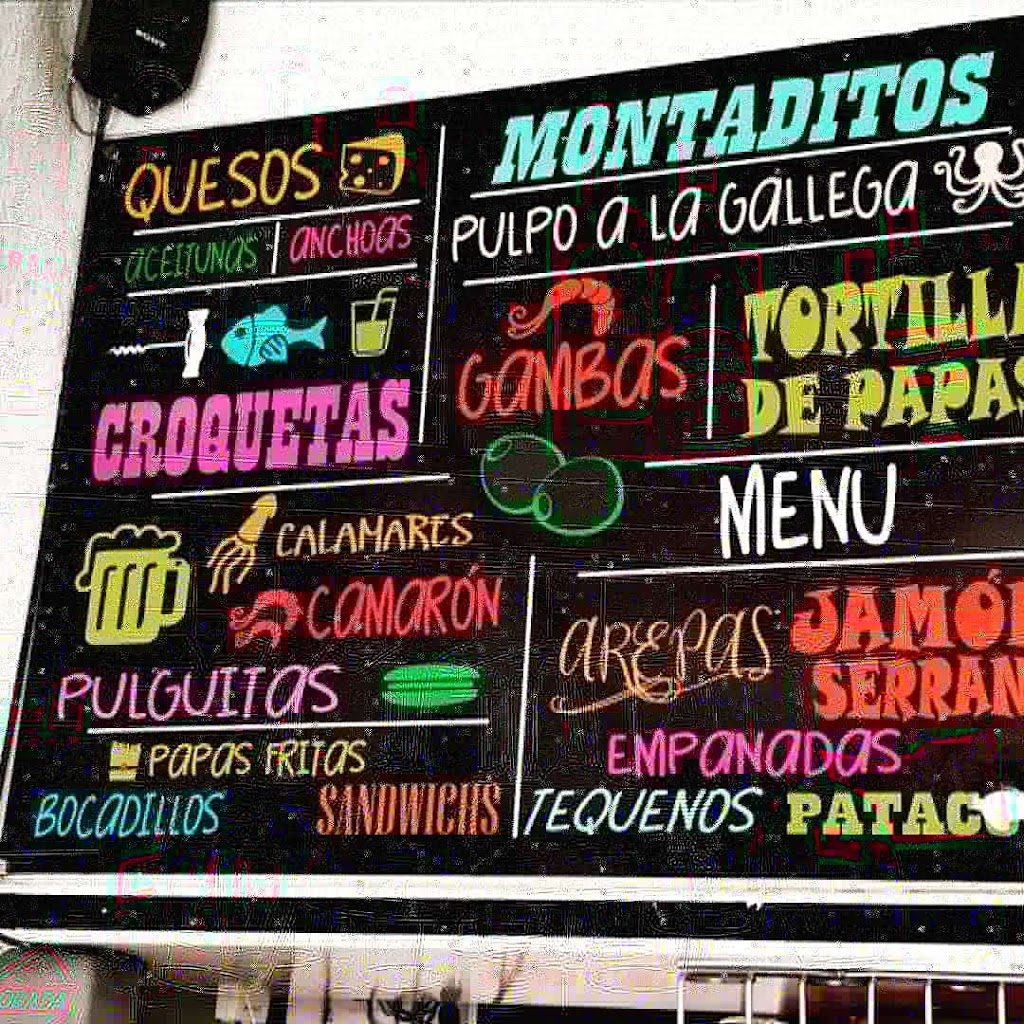 SONY
QUESOS
ACEITUNAS
ANCHOAS
CROQUETAS
CALAMARES
CAMARÓN
PULGUITAS
PAPAS FRITAS
BOCADILLOS
SANDWICHS
MONTADITOS
PULPO A LA GALLEGA
GAMBAS
TORTILLA
DE PAPAS
MENU
AREPAS
JAMÓ
SERRAN
EMPANADAS
TEQUENOS
PATAC